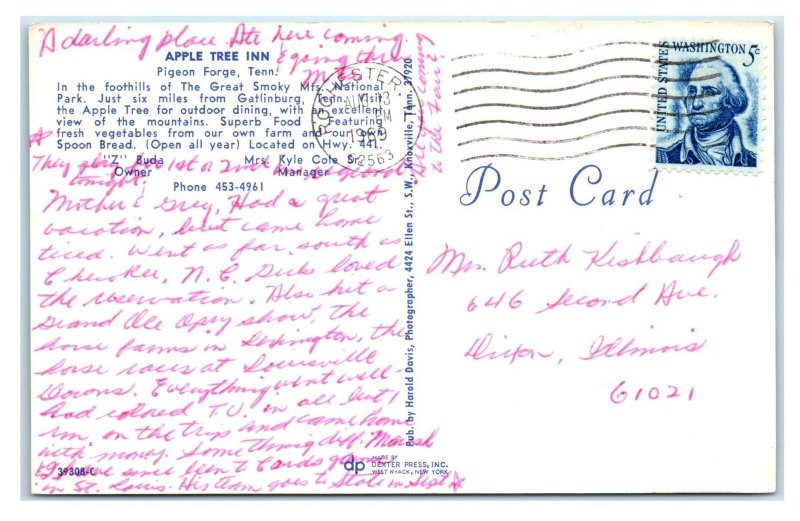 A darling place. Ate here coming
& going thru
APPLE TREE INN
Pigeon Forge, Tenn.
In the foothills of The Great Smoky Mts. National
Park. Just six miles from Gatlinburg, Tenn. Visit
the Apple Tree for outdoor dining with an excellent
view of the mountains. Superb Food - Featuring
fresh vegetables from our own farm and our own
Spoon Bread. (Open all year) Located on Hwy. 441.
"Z" Buda
Mrs. Kyle Cole Sr.
Owner
Manager
Phone 453-4961
They play for 1st or 2nd
tonight.
Mother & Greg, Had a great
vacation, but came home
tired. Went as far south as
Cherokee, N.C. Girls loved
the reservation. Also hit a
Grand Ole Opry show, the
horse farms in Lexington, the
horse races at Louisville
Downs. Everything went well-
had colored T.V. in all but 1
rm. on the trip and came home
with money. Something diff. Marsh
& I have since been to Cards game
in St. Louis. His team goes to State in Sept
39308-C
dp
MADE BY
DEXTER PRESS, INC.
WEST NYACK, NEW YORK
Pub. by Harold Davis, Photographer, 4424 Ellen St., S.W., Knoxville, Tenn. 37920
coming
to the Fair?
ROCHESTER, IL
PM
62563
UNITED STATES
WASHINGTON 5c
Post Card
Mrs. Ruth Kishbaugh
646 Second Ave.
Dixon, Illinois
61021